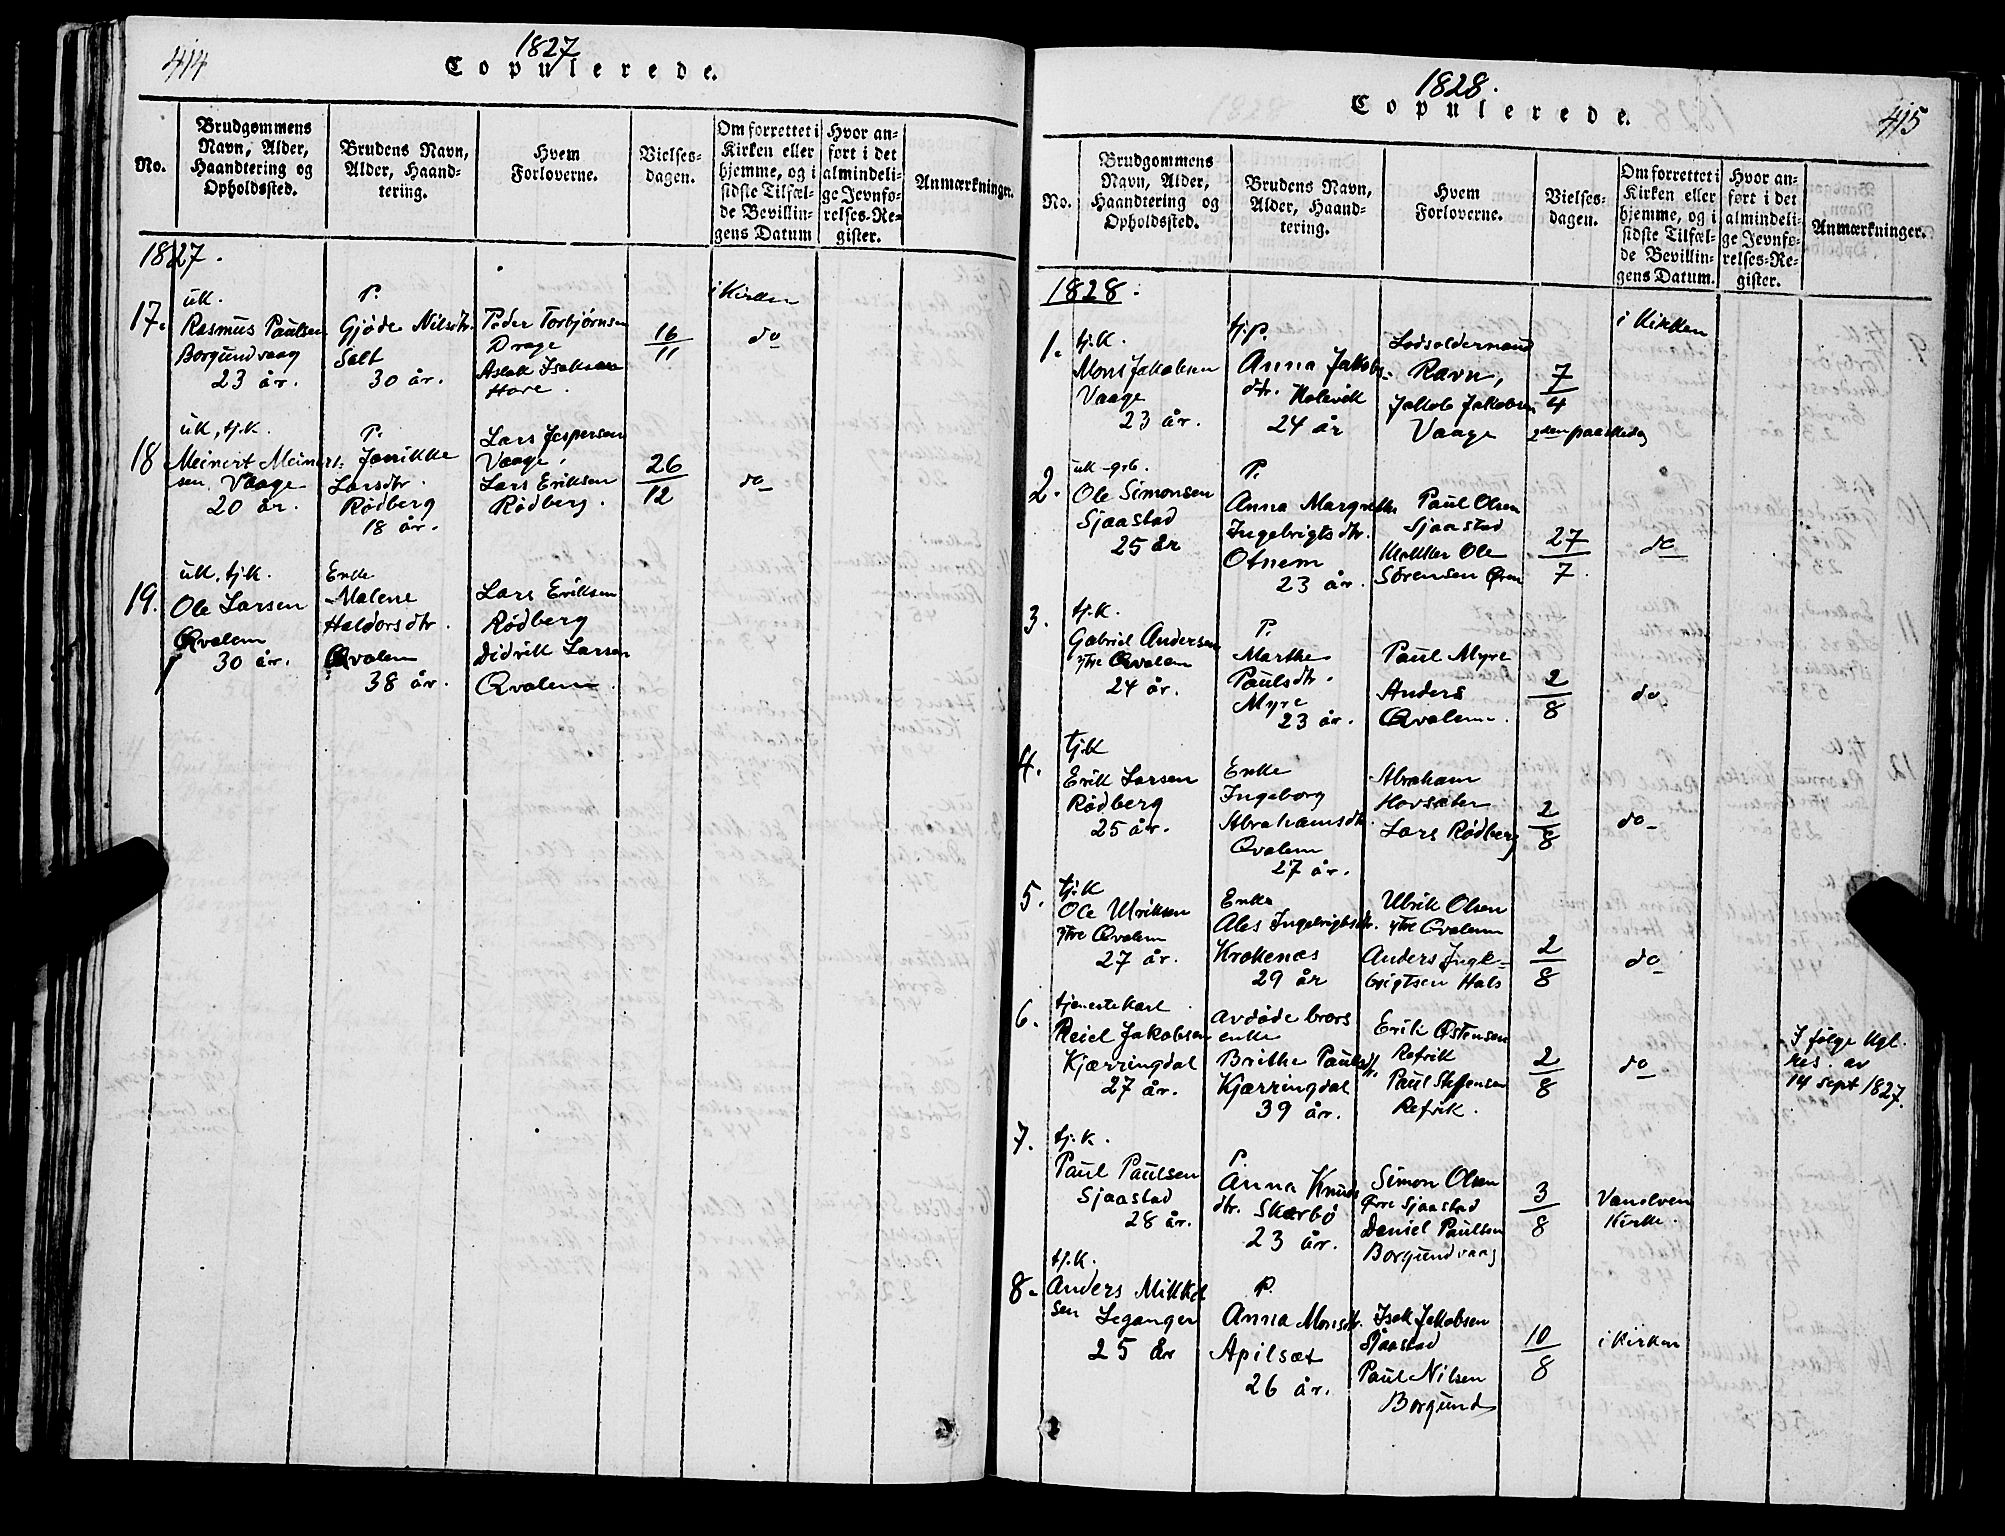 414
1827
Copulerede.
No.
Brudgommens
Navn, Alder,
Haandtering og
Opholdssted.
Brudens Navn,
Alder, Haand-
tering.
Hvem
Forloverne.
Vielses-
dagen.
Om forrettet i
Kirken eller
hjemme, og i
sidste Tilfæl-
de Bevillin-
gens Datum
Hvor an-
ført i det
almindeli-
ge Jevnfø-
relses-Re-
gister.
Anmærkninger.
1827.
17.
uk.
Rasmus Paulsen
Borgundvaag
23 år.
P.
Gjøde Nilsdtr.
Salt
30 år.
Peder Torbjørnsen
Drage
Aslak Isaksen
Hove.
16
11
i Kirken
do
18
uk, tj.k.
Meinert Meinert-
sen. Vaage
20 år.
P.
Jannikke
Larsdtr.
Rødberg
18 år.
Lars Jespersen
Vaage.
Lars Eriksen
Rødberg.
26
12
do
19.
uk, tj.k.
Ole Larsen
Qvalem
30 år.
Enke
Malene
Haldorsdtr.
Qvalem
38 år.
Lars Eriksen
Rødberg
Didrik Larsen
Qvalem.
1828.
Copulerede.
415
No.
Brudgommens
Navn, Alder,
Haandtering og
Opholdssted.
Brudens Navn,
Alder, Haand-
tering.
Hvem
Forloverne.
Vielses-
dagen.
Om forrettet i
Kirken eller
hjemme, og i
sidste Tilfæl-
de Bevillin-
gens Datum.
Hvor an-
ført i det
almindeli-
ge Jevnfø-
relses-Re-
gister.
Anmærkninger.
1828.
1.
tj.k.
Mons Jakobsen
Vaage
23 år.
tj.p.
Anna Jakobs-
dtr. Holevik
24 år
Lodsoldermand
Ravn,
Jakob Jakobsen
Vaage
7
4
2den paaskedag
i Kirken
2.
uk - grb.
Ole Simonsen
Sjaastad
25 år
P.
Anna Margrethe
Ingebrigtsdtr.
Otnem
23 år.
Paul Olsen
Sjaastad
Klokker Ole
Sørensen Øren
27
7.
do
3.
tj.k.
Gabriel Andersen
ytre Qvalem
24 år.
P.
Marthe
Paulsdtr.
Myre
23 år.
Paul Myre
Anders
Qvalem.
2
8
do
4.
tj.k
Erik Larsen
Rødberg
25 år.
Enke
Ingeborg
Abrahamsdtr.
Qvalem
27 år.
Abraham
Hovsæter
Lars Rødberg
2
8
do
5.
tj.k
Ole Ulriksen
ytre Qvalem
27 år.
Enke
Ales Ingebrigtsdtr.
Krokenæs
29 år
Ulrik Olsen
ytre Qvalem
Anders Inge-
brigtsen Hals
2
8
do
6.
tjenestekarl
Reiel Jakobsen
Kjærringdal
27 år.
avdøde brors
enke
Brithe Paulsdtr.
Kjærringdal
39 år.
Erik Østensen
Refvik
Paul Steffensen
Refvik.
2
8
do
I følge kgl.
res. av
14 sept 1827.
7.
tj.k.
Paul Paulsen
Sjaastad
28 år.
P.
Anna Knuds
dtr. Skarbø
23 år.
Simon Olsen
Øvre Sjaastad
Daniel Paulsen
Borgundvaag
3
8
Vanelven
Kirke.
8.
tj.k.
Anders Mikkel
sen Leganger
25 år
P.
Anna Monsdtr.
Apilsæt
26 år.
Isak Jakobsen
Sjaastad
Paul Nilsen
Borgund
10
8
i Kirken